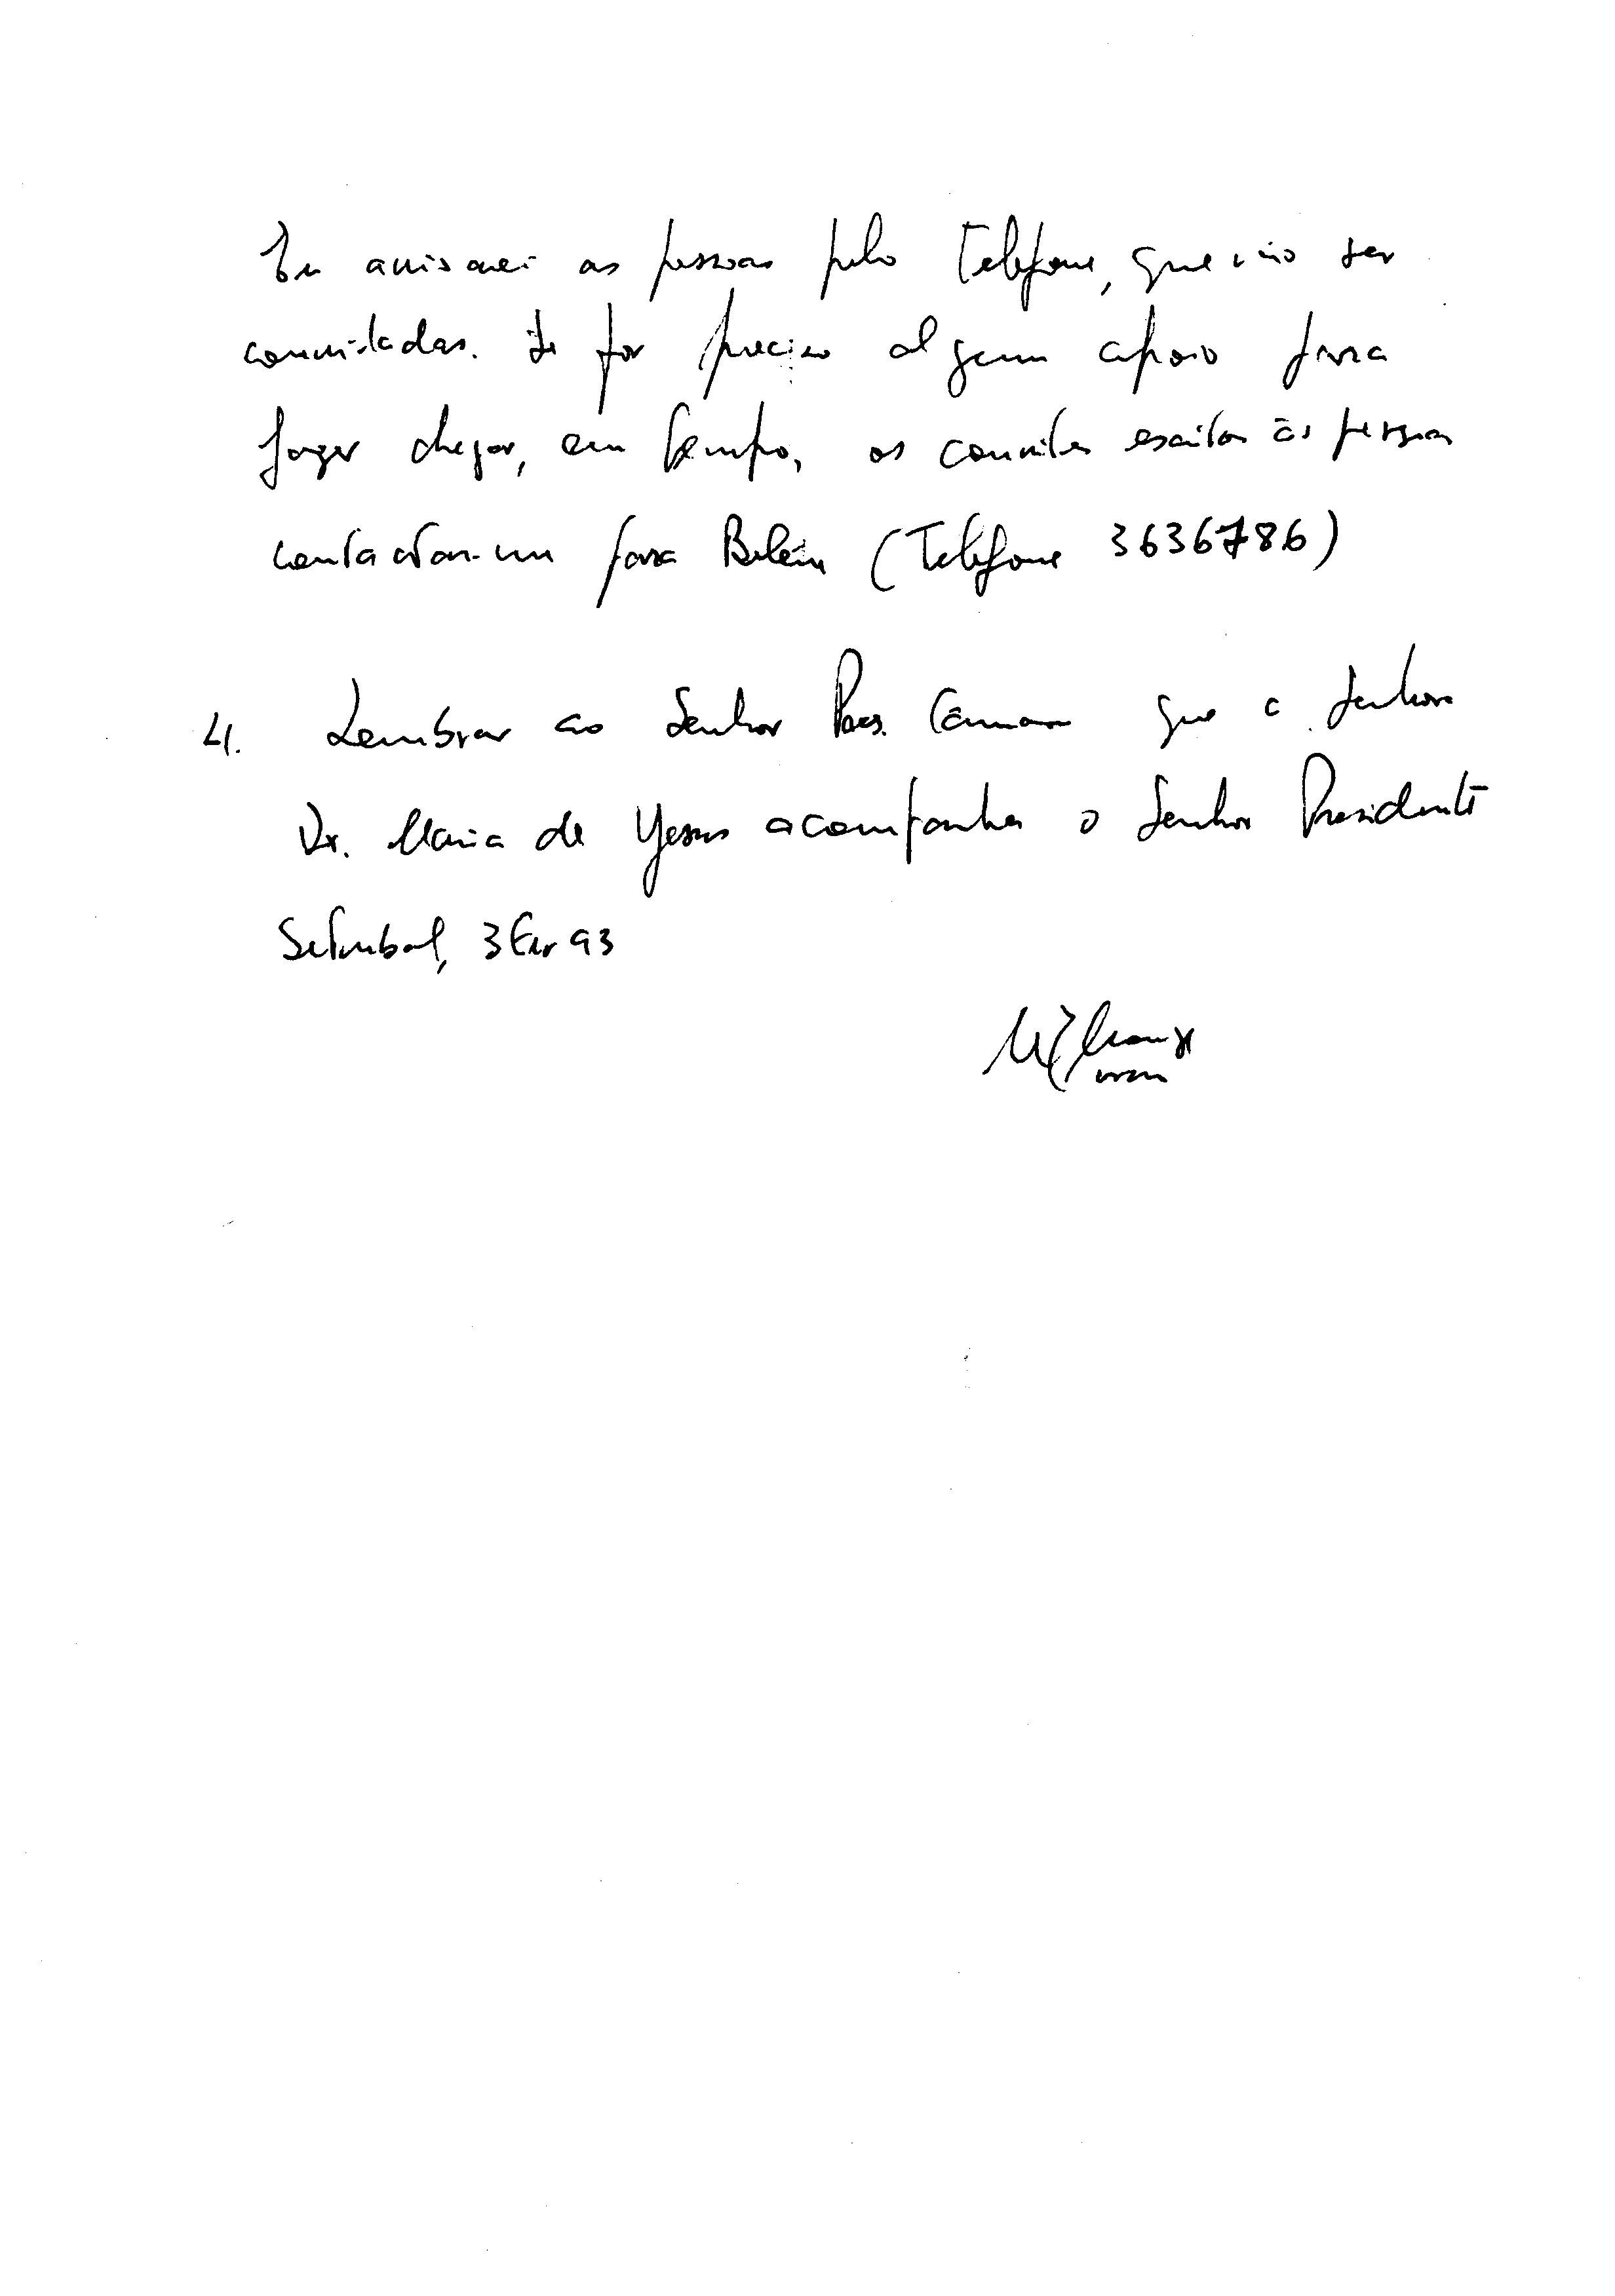 Eu avisarei as pessoas pelo Telefone, que vão ser
convidadas. Se for preciso algum apoio para
fazer chegar, em tempo, os convites escritos às pessoas
contactar-me para Belém (Telefone 3636786)
4. Lembrar ao Senhor Pres. Câmara que a Senhora
Dr. Maria de Yesus acompanha o Senhor Presidente
Setubal, 3 93